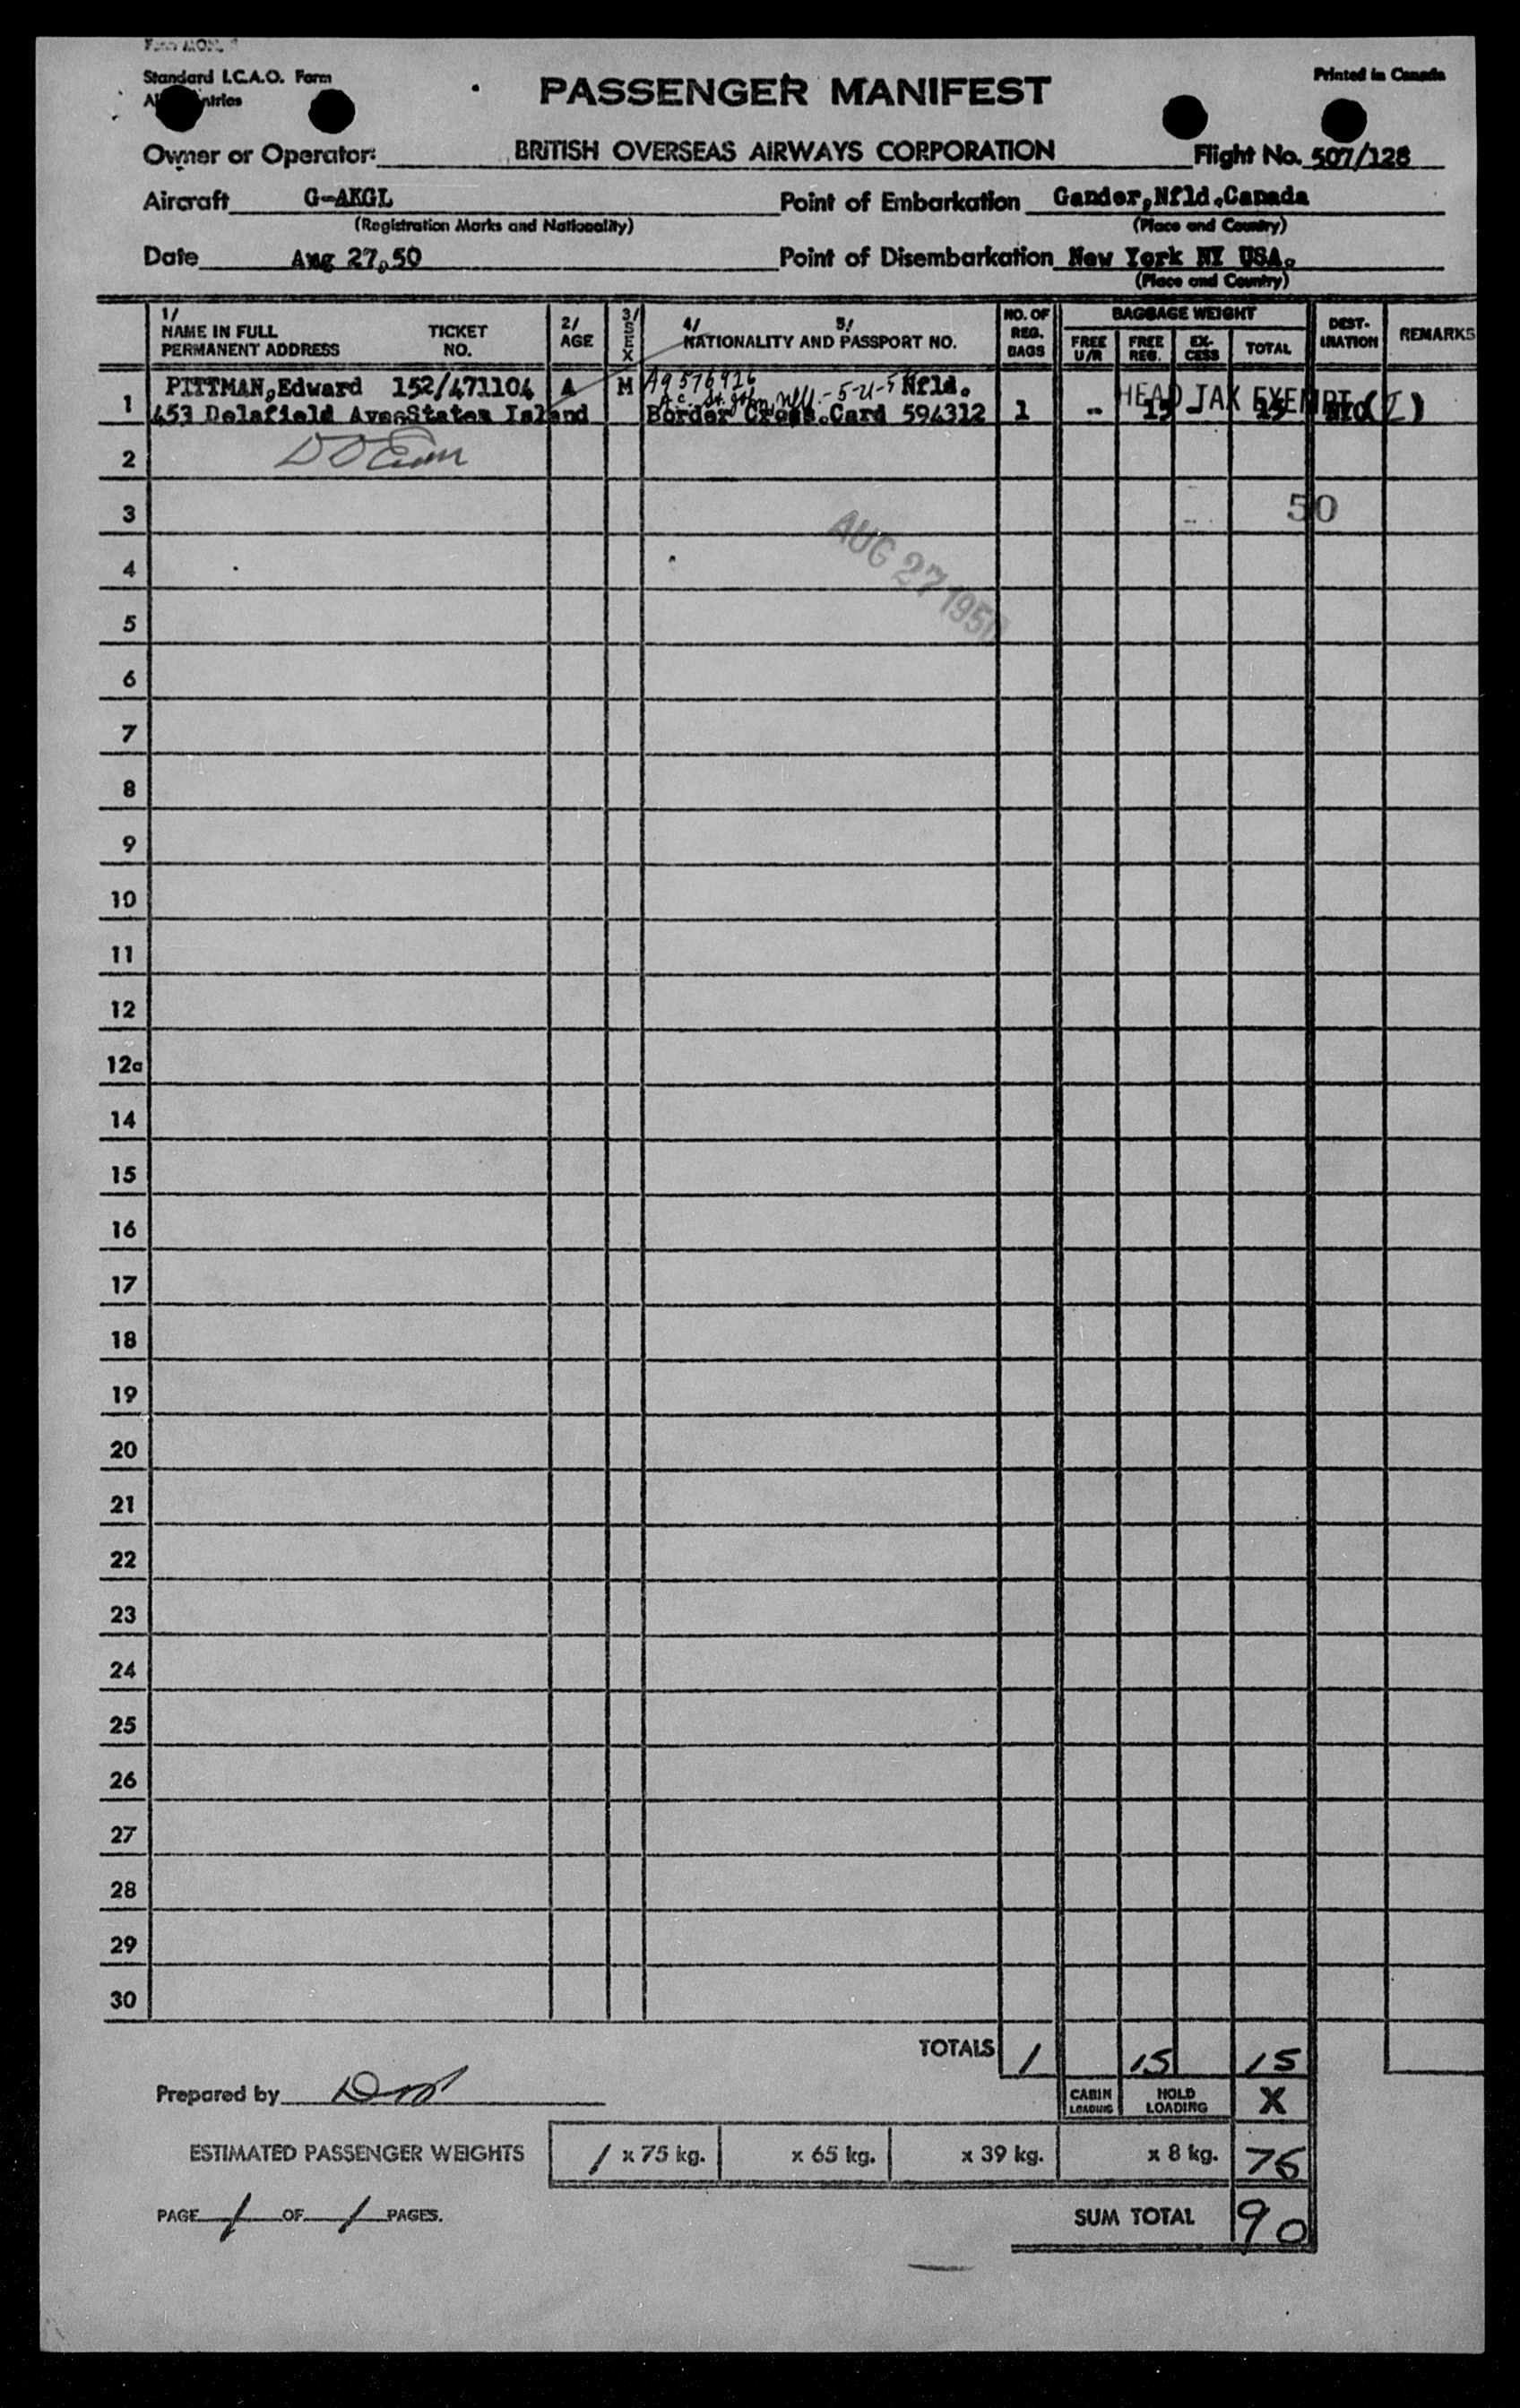 Standard I.C.A.O. Form
PASSENGER MANIFEST
Printed in Canada
Owner or Operator: BRITISH OVERSEAS AIRWAYS CORPORATION Flight No. 507/128
Aircraft G-AKGL Point of Embarkation Gander,Nfld.,Canada
(Registration Marks and Nationality) (Place and Country)
Date Aug 27,50 Point of Disembarkation New York NY USA.
(Place and Country)
1/ NAME IN FULL PERMANENT ADDRESS TICKET NO. 2/ AGE 3/ SEX 4/ 5/ NATIONALITY AND PASSPORT NO. NO. OF REG. BAGS BAGGAGE WEIGHT FREE U/R FREE REG. EX-CESS TOTAL DEST-INATION REMARKS
1 PITTMAN,Edward 152/471104 A M A9576926 Nfld.
453 Delafield Ave.Staten Island Border Cross.Card 594312 1 - 15 - 15
HEAD TAX EXEMPT (I)
2
3 50
AUG 27 1950
4
5
6
7
8
9
10
11
12
12a
14
15
16
17
18
19
20
21
22
23
24
25
26
27
28
29
30
TOTALS 1 15 15
Prepared by
CABIN LOADING HOLD LOADING X
ESTIMATED PASSENGER WEIGHTS 1 x 75 kg. x 65 kg. x 39 kg. x 8 kg. 75
PAGE 1 OF 1 PAGES.
SUM TOTAL 90